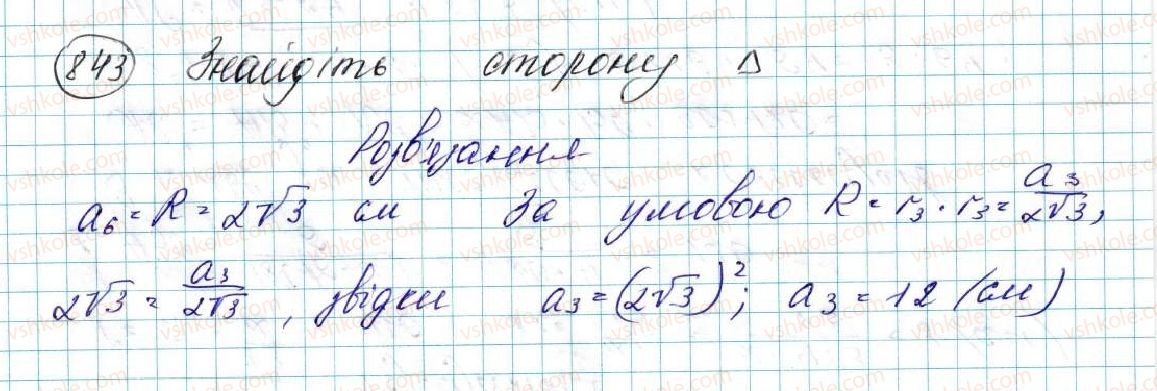 843 Знайдіть сторону Δ
Розв'язання
a₆ = R = 2√3 см За умовою R = r₃. r₃ = a₃/2√3,
2√3 = a₃/2√3, звідки a₃ = (2√3)²; a₃ = 12 (см)